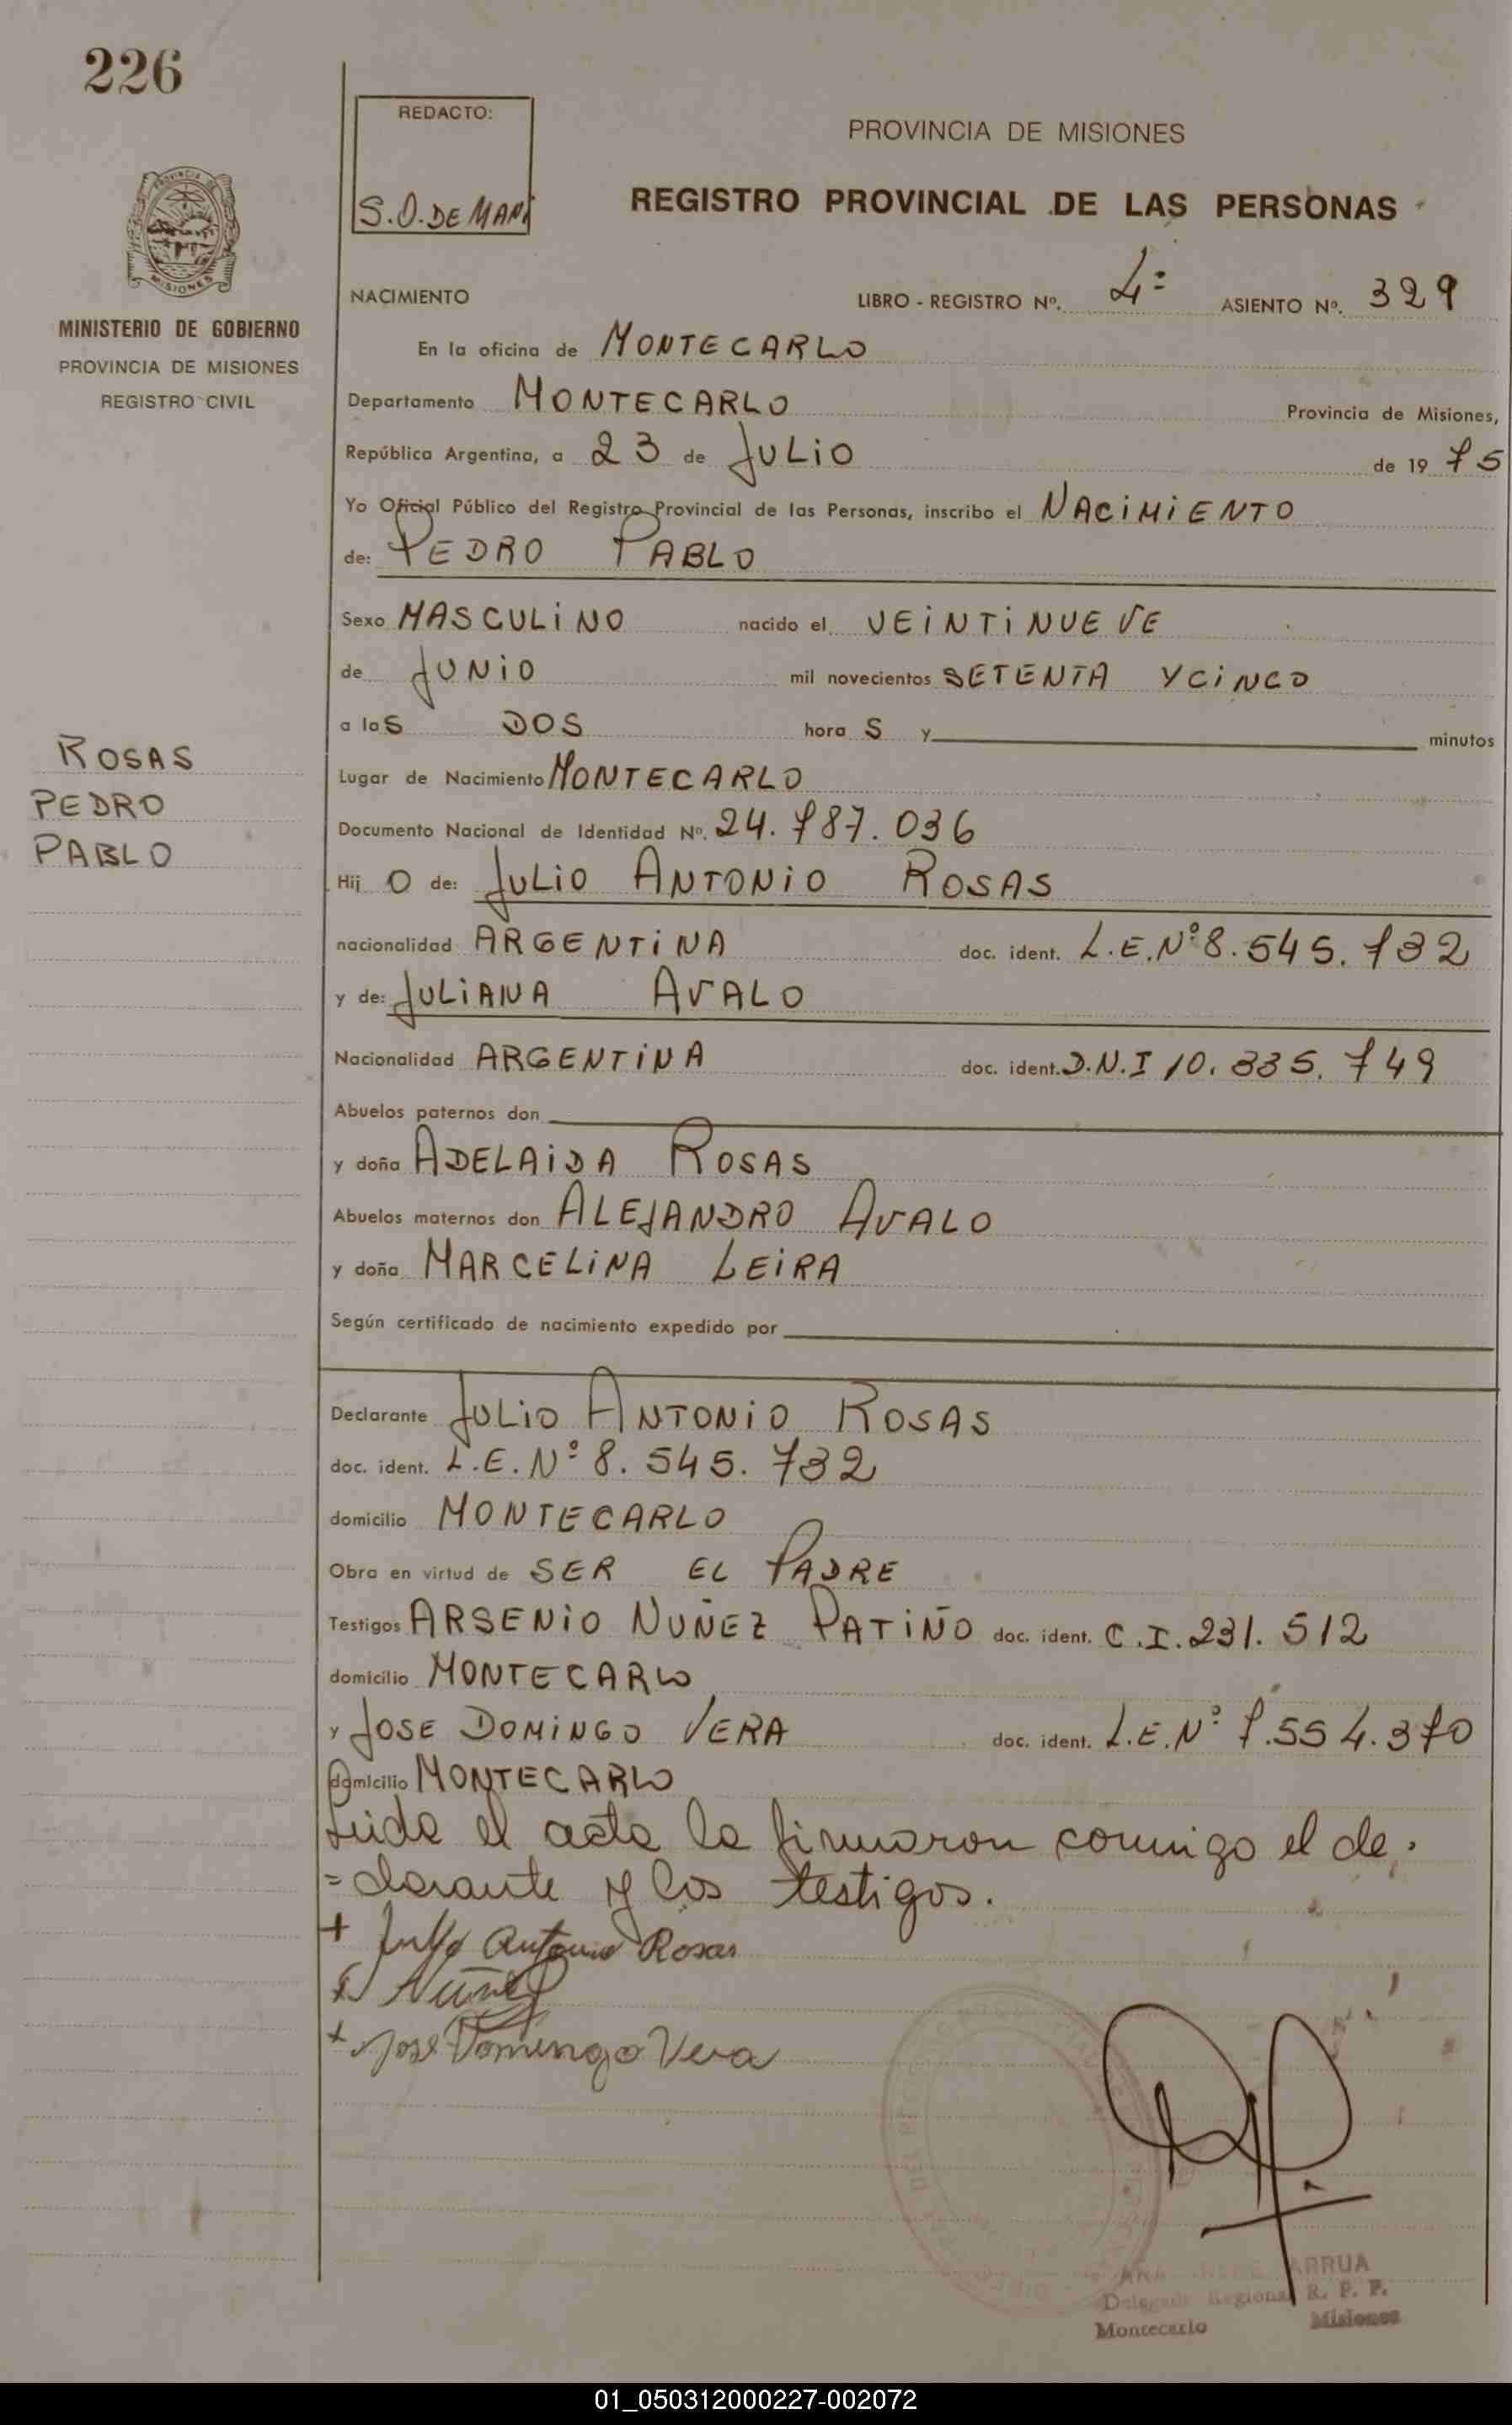 226
REDACTO:
S.O. DE MARI
PROVINCIA DE MISIONES
REGISTRO PROVINCIAL DE LAS PERSONAS
PROVINCIA DE
MISIONES
MINISTERIO DE GOBIERNO
PROVINCIA DE MISIONES
REGISTRO CIVIL
NACIMIENTO LIBRO - REGISTRO Nº. 4º ASIENTO Nº. 329
En la oficina de MONTECARLO
Departamento MONTECARLO Provincia de Misiones,
República Argentina, a 23 de JULIO de 19 75
Yo Oficial Público del Registro Provincial de las Personas, inscribo el NACIMIENTO
de: PEDRO PABLO
Sexo MASCULINO nacido el VEINTINUEVE
de JUNIO mil novecientos SETENTA Y CINCO
a las DOS hora S y minutos
ROSAS
PEDRO
PABLO
Lugar de Nacimiento MONTECARLO
Documento Nacional de Identidad Nº. 24.787.036
Hij O de: JULIO ANTONIO ROSAS
nacionalidad ARGENTINA doc. ident. L.E.Nº 8.545.732
y de: JULIANA AVALO
Nacionalidad ARGENTINA doc. ident. D.N.I 10.335.749
Abuelos paternos don
y doña ADELAIDA ROSAS
Abuelos maternos don ALEJANDRO AVALO
y doña MARCELINA LEIRA
Según certificado de nacimiento expedido por
Declarante JULIO ANTONIO ROSAS
doc. ident. L.E.Nº 8.545.732
domicilio MONTECARLO
Obra en virtud de SER EL PADRE
Testigos ARSENIO NUÑEZ PATIÑO doc. ident. C.I. 231.512
domicilio MONTECARLO
y JOSE DOMINGO VERA doc. ident. L.E.Nº 7.554.370
domicilio MONTECARLO
Leida el acta la firmaron conmigo el de-
=clarante y los testigos.
+ Julio Antonio Rosas
Nuñez
+ Jose Domingo Vera
ARRUA
Delegada Regional R. P. P.
Montecarlo Misiones
01_050312000227-002072